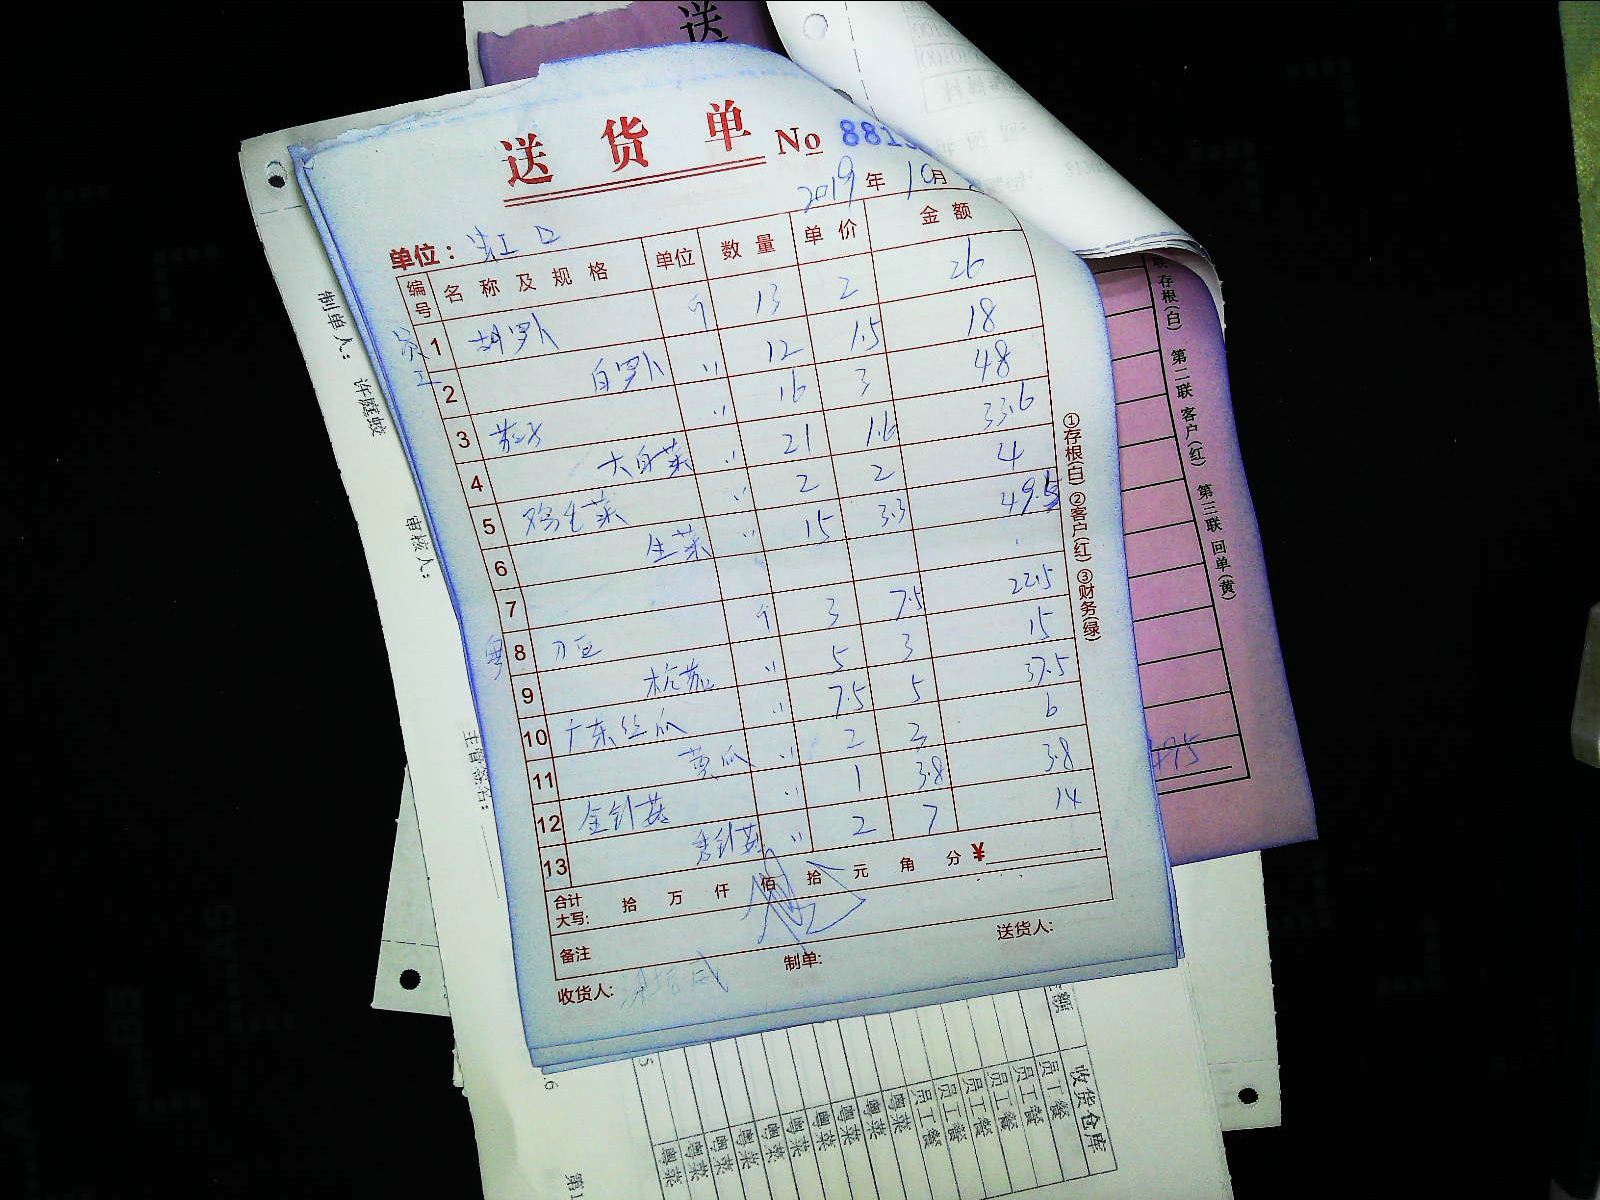 送
送货单 No 881
2019年10月
单位: 虹口
编号 名称及规格 单位 数量 单价 金额
1 胡萝卜 个 13 2 26
2 白萝卜 〃 12 1.5 18
3 〃 16 3 48
4 大白菜 〃 21 1.6 33.6
5 鸡毛菜 〃 2 2 4
6 生菜 〃 15 3.3 49.5
7
粤 8 刀豆 个 3 7.5 22.5
9 杭茄 〃 5 3 15
10 广东丝瓜 〃 7.5 5 37.5
11 黄瓜 〃 2 3 6
12 金针菇 〃 1 3.8 3.8
13 〃 2 7 14
合计大写: 拾 万 仟 佰 拾 元 角 分 ¥
备注
收货人: 制单: 送货人:
①存根(白) ②客户(红) ③财务(绿)
制单人: 许庭蛟
审核人:
存根(白) 第二联 客户(红) 第三联 回单(黄)
收货仓库
员工餐
员工餐
员工餐
员工餐
员工餐
员工餐
粤菜
粤菜
粤菜
粤菜
粤菜
粤菜
粤菜
粤菜
粤菜